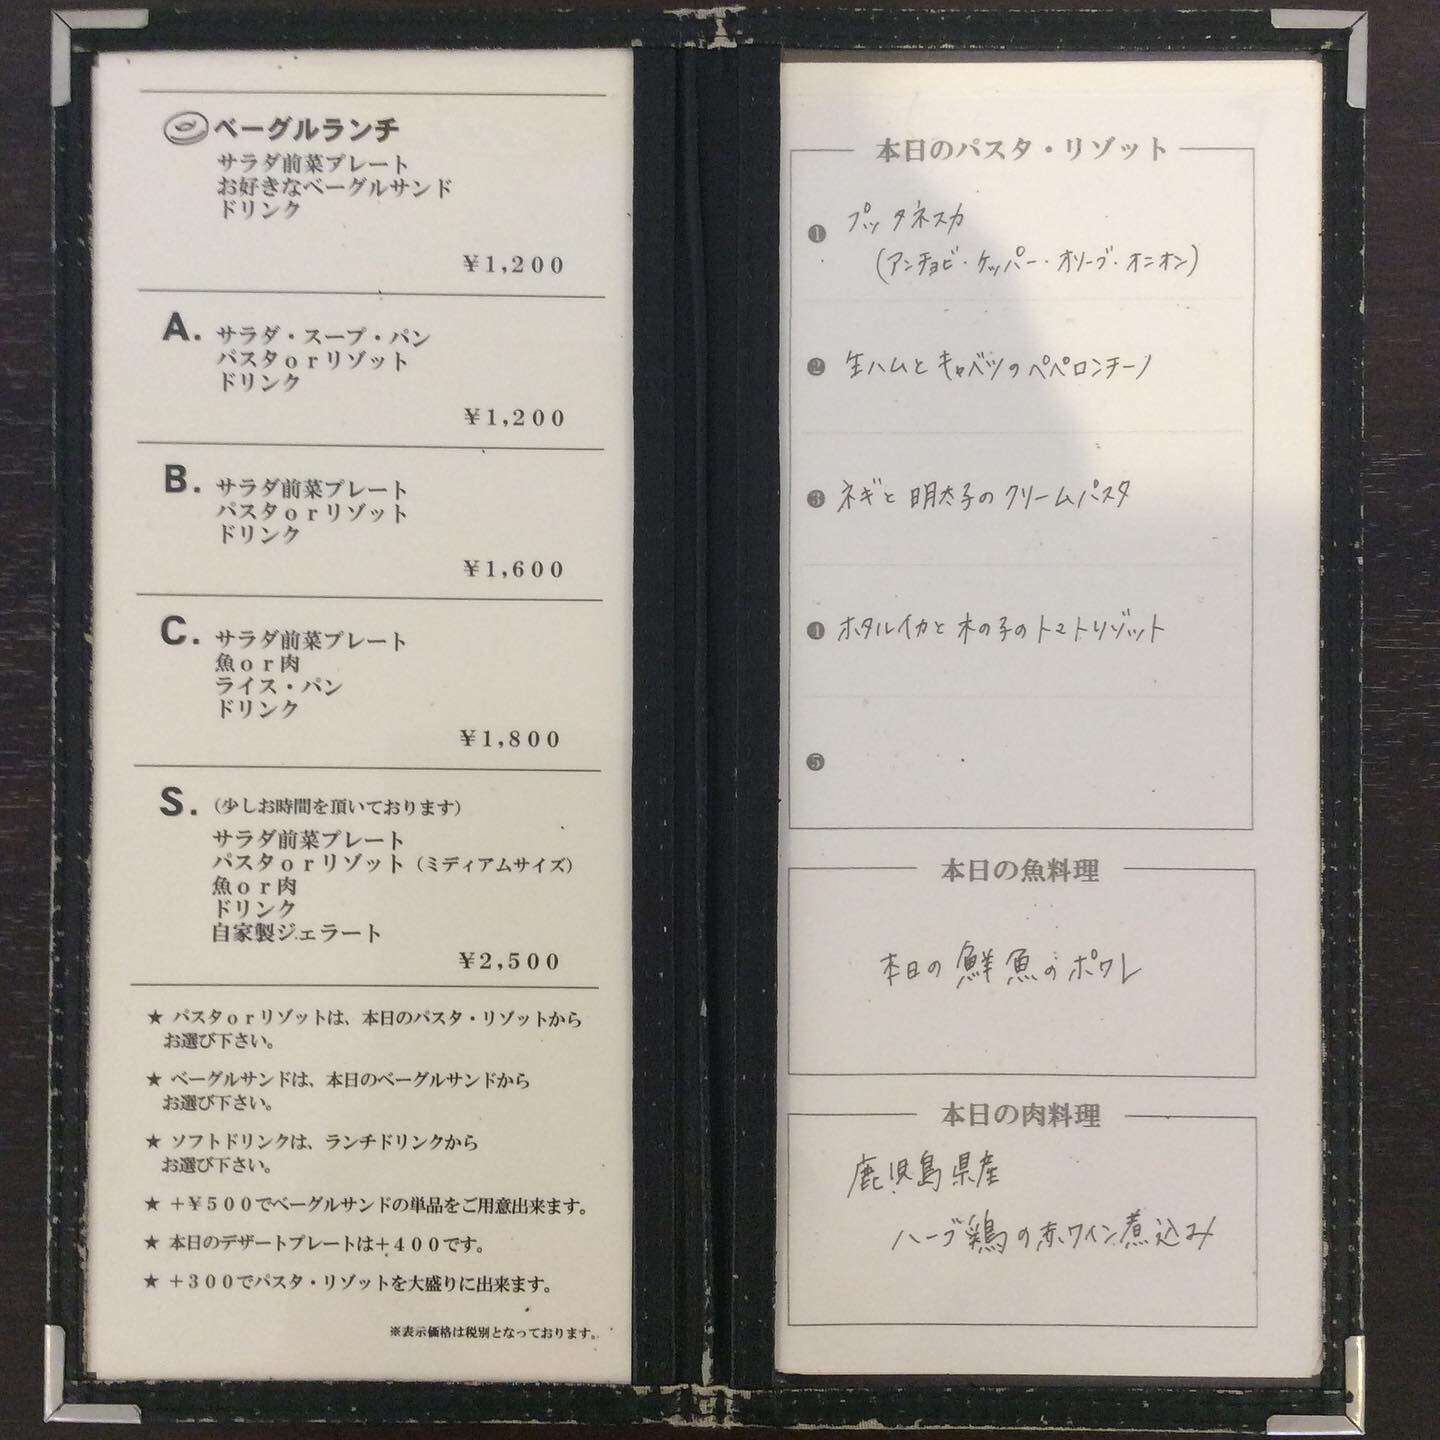 ベーグルランチ
サラダ前菜プレート
お好きなベーグルサンド
ドリンク
¥1,200
A. サラダ・スープ・パン
パスタorリゾット
ドリンク
¥1,200
B. サラダ前菜プレート
パスタorリゾット
ドリンク
¥1,600
C. サラダ前菜プレート
魚or肉
ライス・パン
ドリンク
¥1,800
S. (少しお時間を頂いております)
サラダ前菜プレート
パスタorリゾット(ミディアムサイズ)
魚or肉
ドリンク
自家製ジェラート
¥2,500
★ パスタorリゾットは、本日のパスタ・リゾットから
お選び下さい。
★ ベーグルサンドは、本日のベーグルサンドから
お選び下さい。
★ ソフトドリンクは、ランチドリンクから
お選び下さい。
★ +¥500でベーグルサンドの単品をご用意出来ます。
★ 本日のデザートプレートは+400です。
★ +300でパスタ・リゾットを大盛りに出来ます。
※表示価格は税別となっております。
本日のパスタ・リゾット
❶ プッタネスカ
(アンチョビ・ケッパー・オリーブ・オニオン)
❷ 生ハムとキャベツのペペロンチーノ
❸ ネギと明太子のクリームパスタ
❹ ホタルイカと木の子のトマトリゾット
❺
本日の魚料理
本日の鮮魚のポワレ
本日の肉料理
鹿児島県産
ハーブ鶏の赤ワイン煮込み